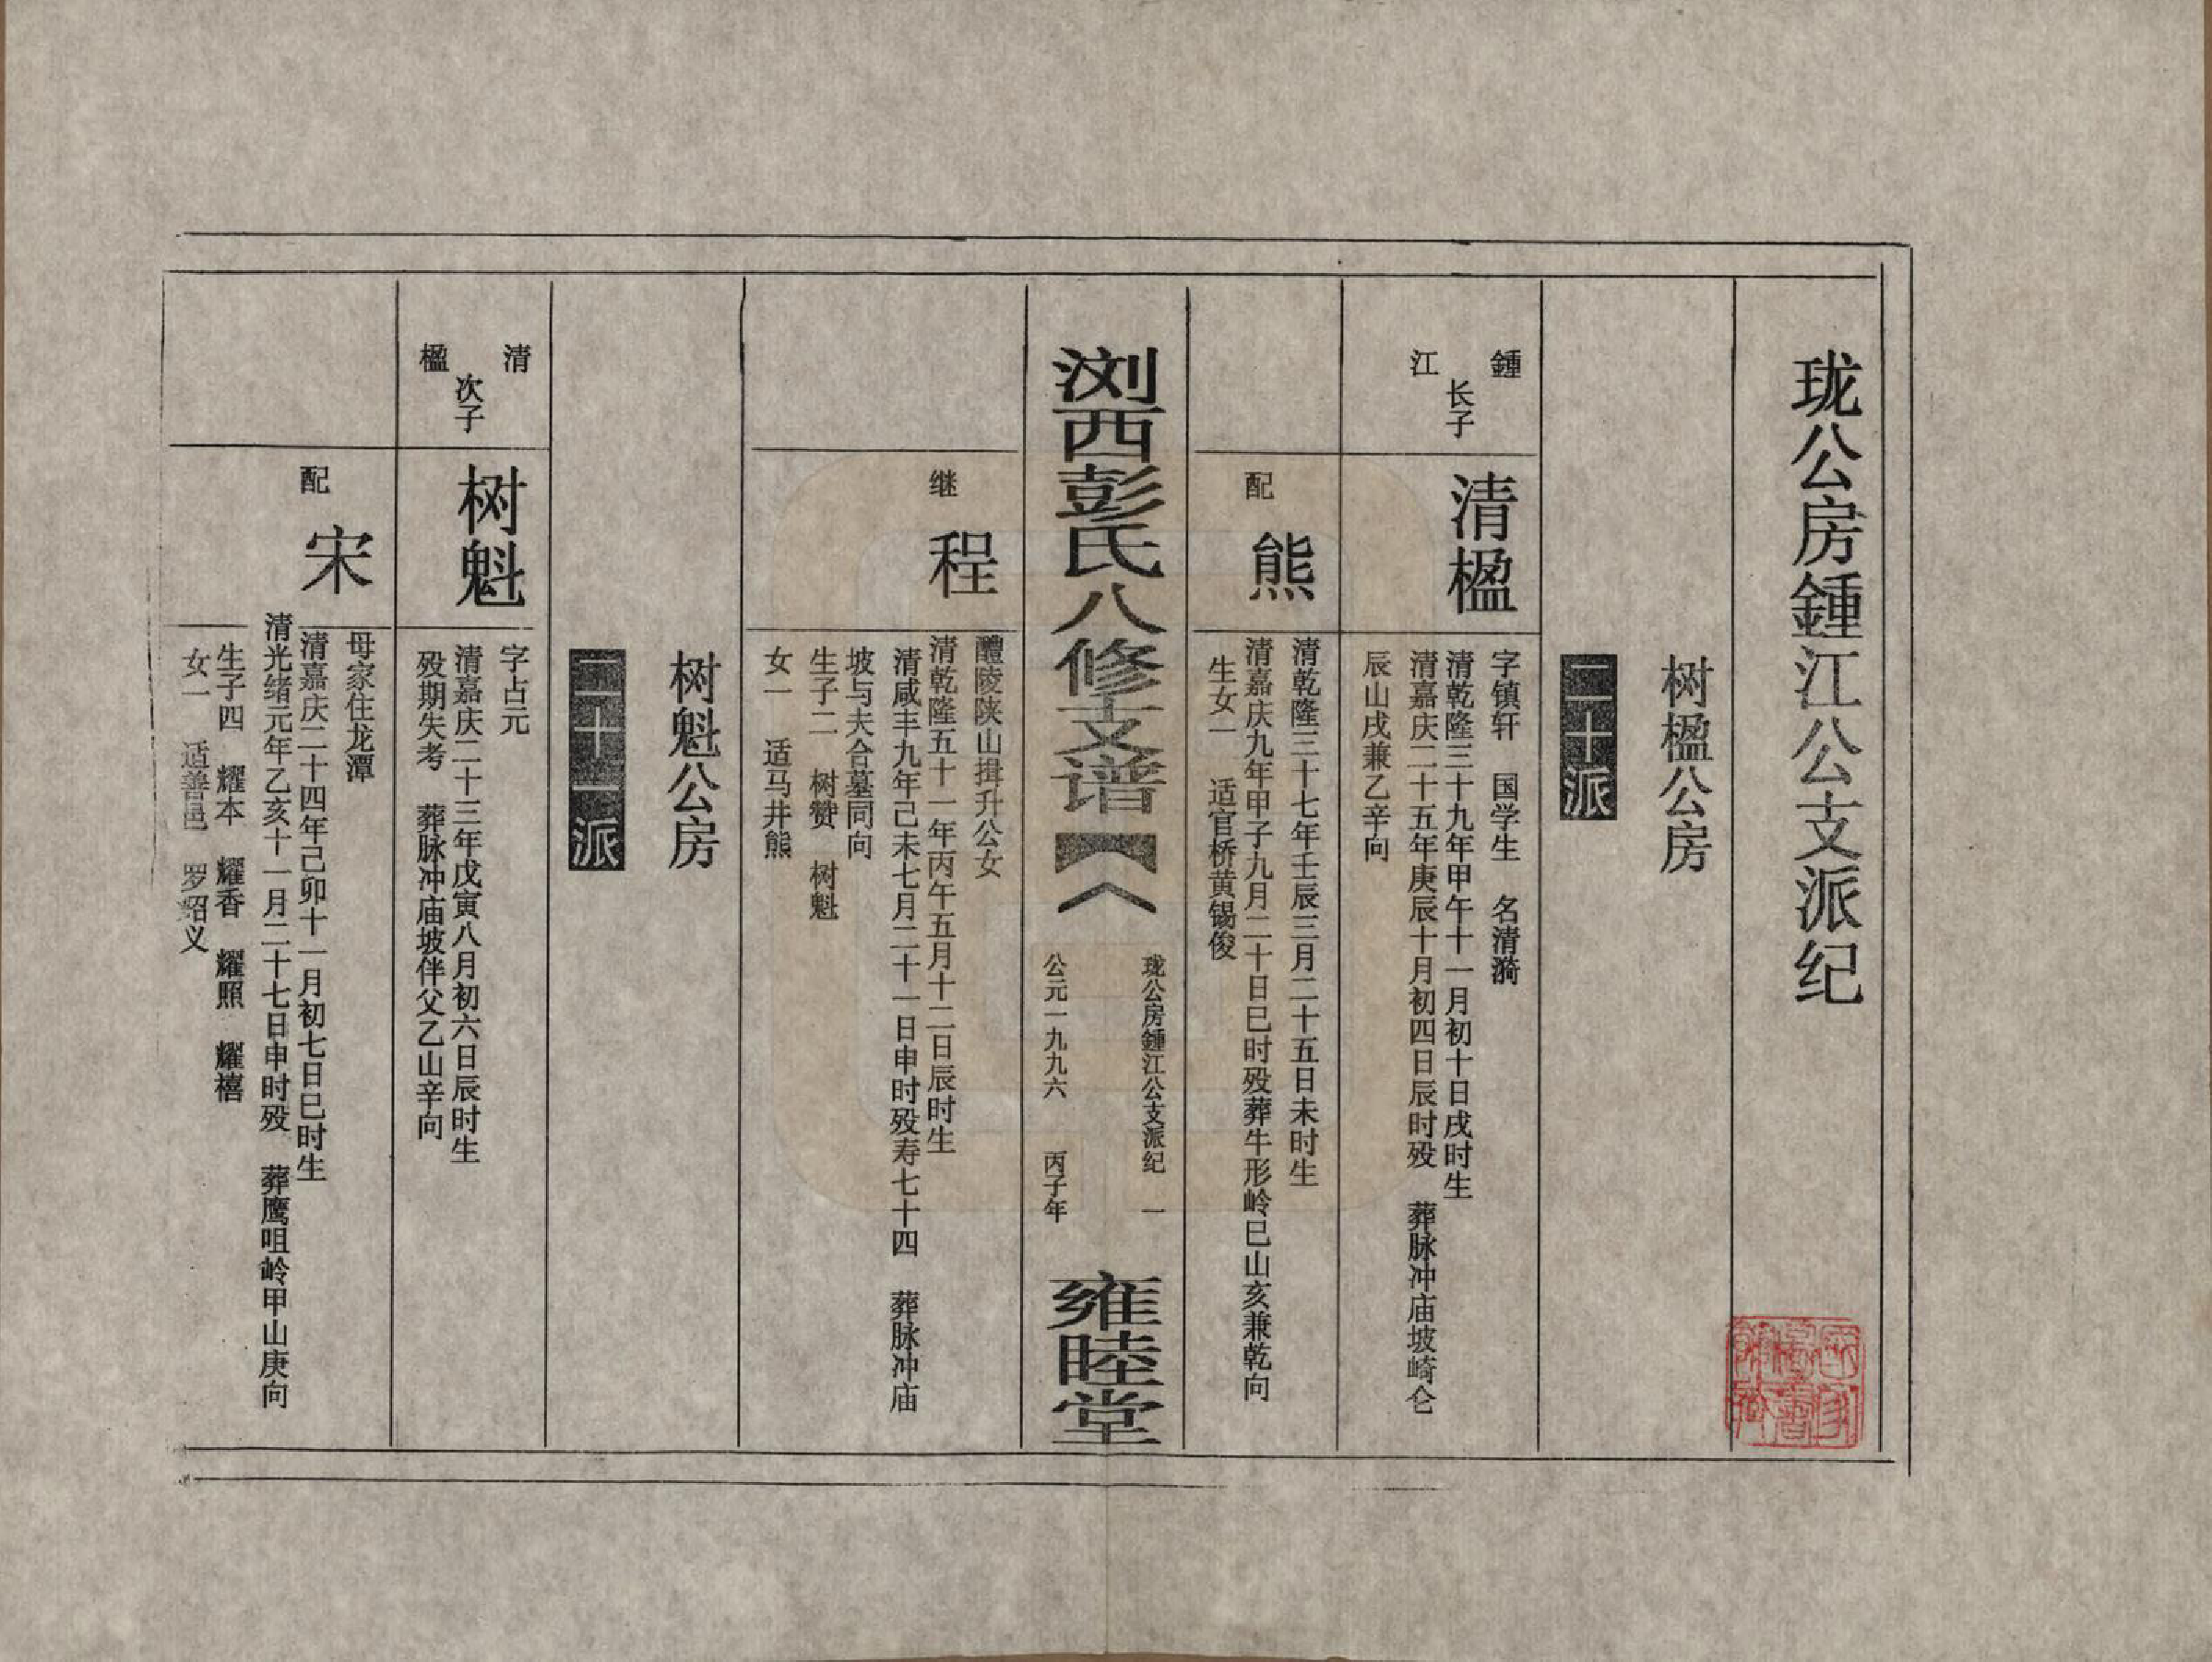 珑公房鍾江公支派纪
树楹公房
二十派
鍾江
长子
清楹
字镇轩　国学生　名清漪
清乾隆三十九年甲午十一月初十日戌时生
清嘉庆二十五年庚辰十月初四日辰时殁　葬脉冲庙坡崎仑
辰山戌兼乙辛向
配
熊
清乾隆三十七年壬辰三月二十五日未时生
清嘉庆九年甲子九月二十日巳时殁葬牛形岭巳山亥兼乾向
生女一　适官桥黄锡俊
浏西彭氏八修支谱
珑公房鍾江公支派纪　一
公元一九九六　丙子年
雍睦堂
继
程
醴陵陕山揖升公女
清乾隆五十一年丙午五月十二日辰时生
清咸丰九年己未七月二十一日申时殁寿七十四　葬脉冲庙
坡与夫合墓同向
生子二　树赞　树魁
女一　适马井熊
树魁公房
二十一派
清楹
次子
树魁
字占元
清嘉庆二十三年戊寅八月初六日辰时生
殁期失考　葬脉冲庙坡伴父乙山辛向
配
宋
母家住龙潭
清嘉庆二十四年己卯十一月初七日巳时生
清光绪元年乙亥十一月二十七日申时殁　葬鹰咀岭甲山庚向
生子四　耀本　耀香　耀照　耀禧
女一　适善邑　罗绍义